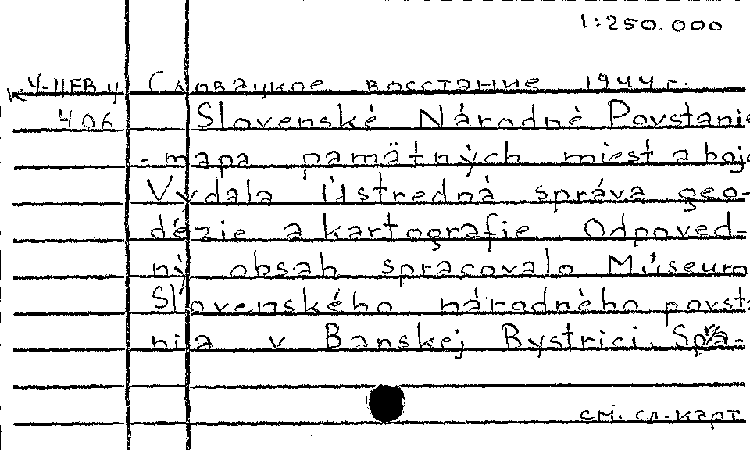 1:250.000
У-ЦЕВ Ч Словацкое восстание 1944 г.
406 Slovenské Národné Povstanie
- mapa pamätných miest a bojo
Vydala Ústredná správa geo-
dézie a kartografie. Odpoved-
ný obsah spracovalo Múseum
Slovenského národného povsta
nia v Banskej Bystrici. Spa-
см. сл. карт